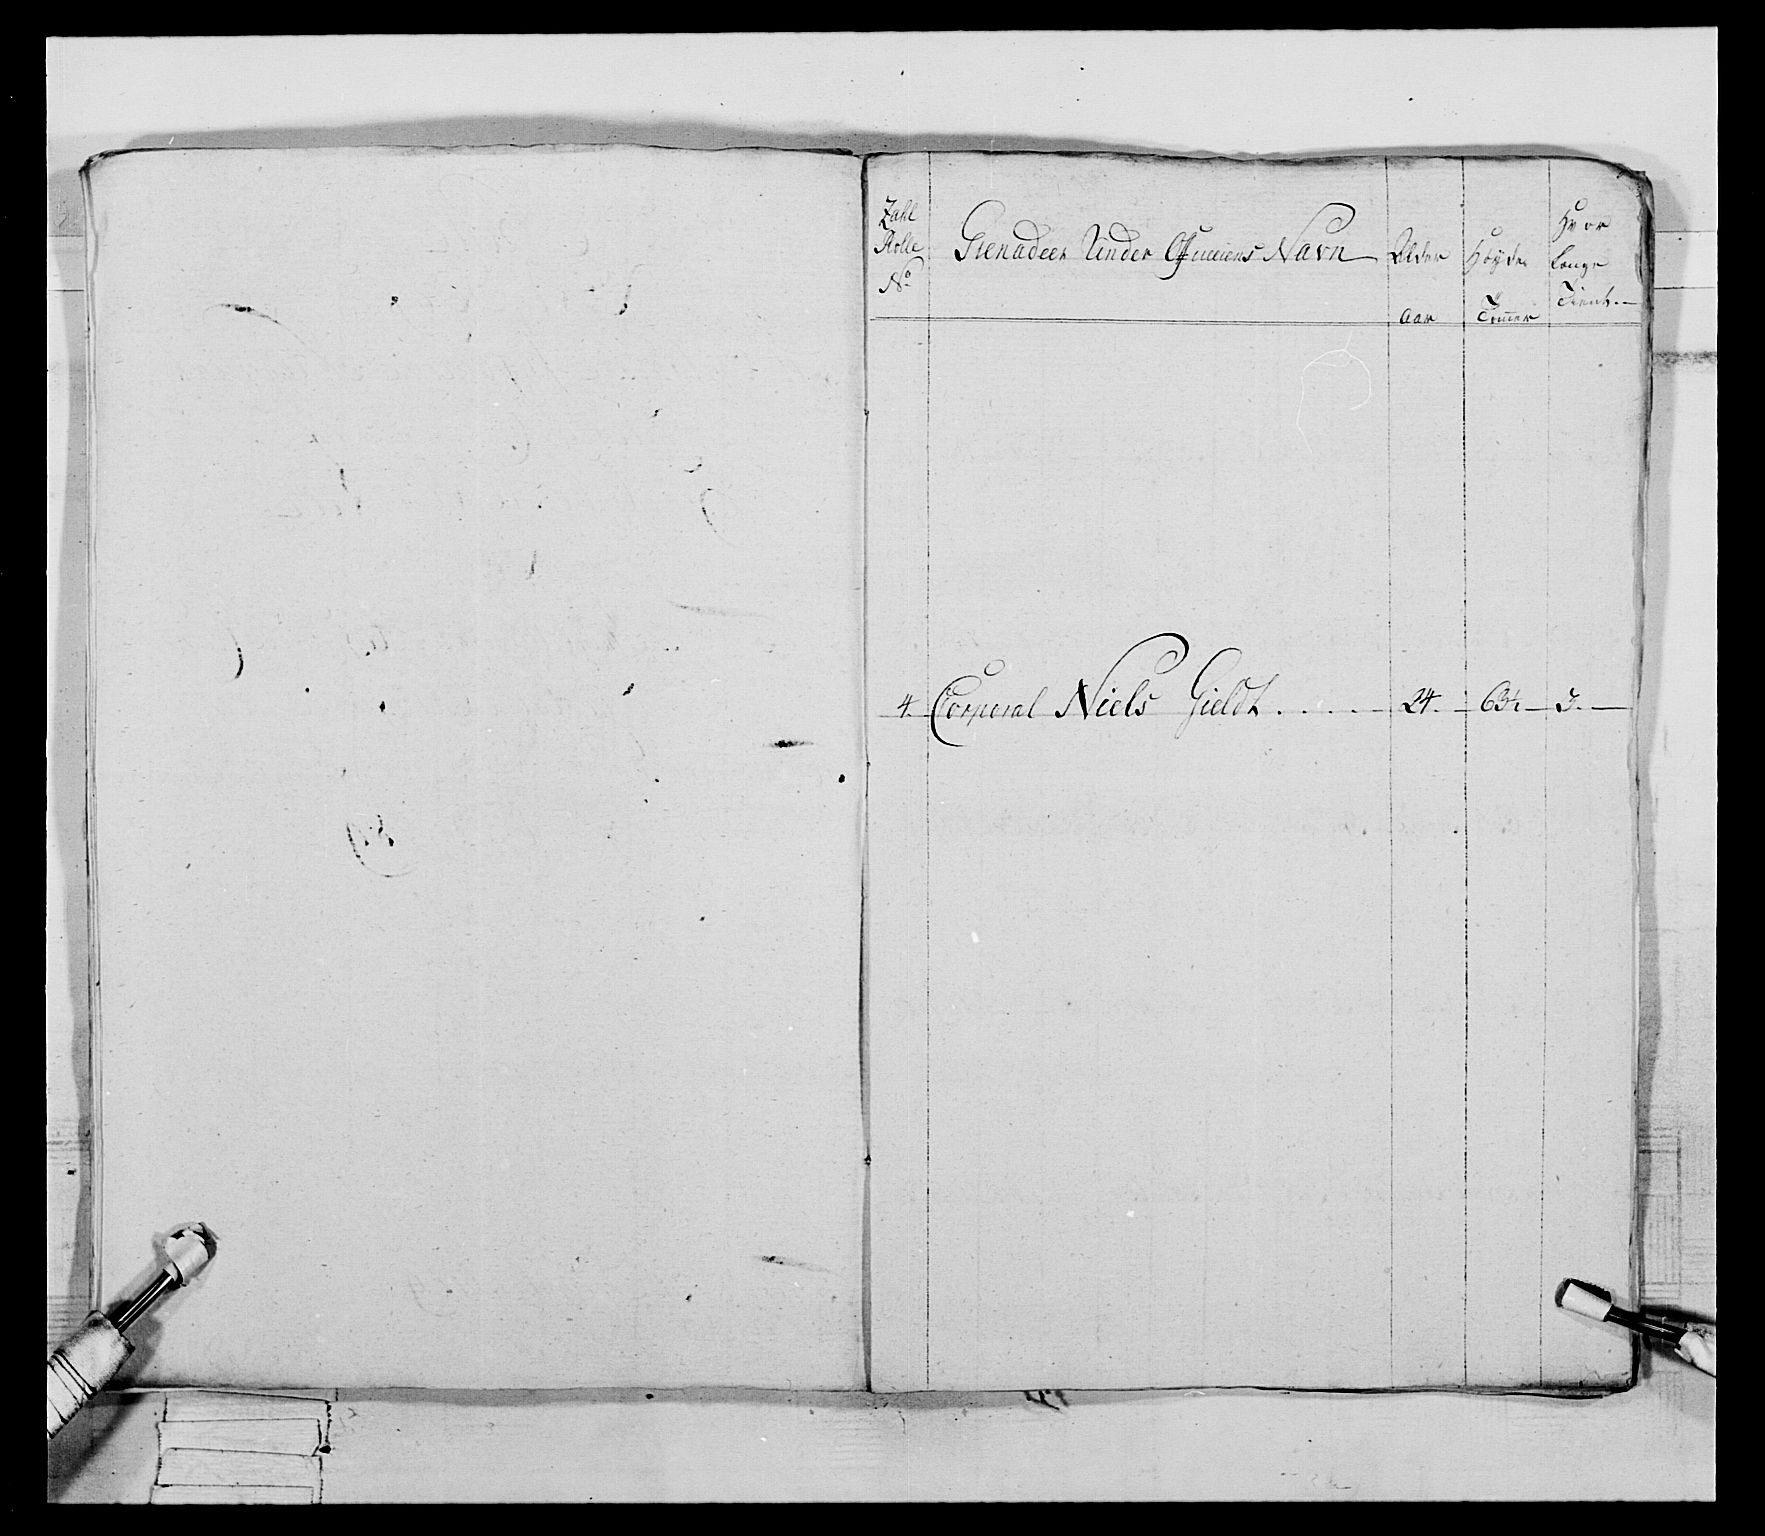 Zahl Rolle No
Grenadeer Under Officeers Navn
Alder
Aar
Høyde
Tommer
Hvor længe Tient.
4. Corporal Niels Gieldt . . . . . 24. 63½ 3.